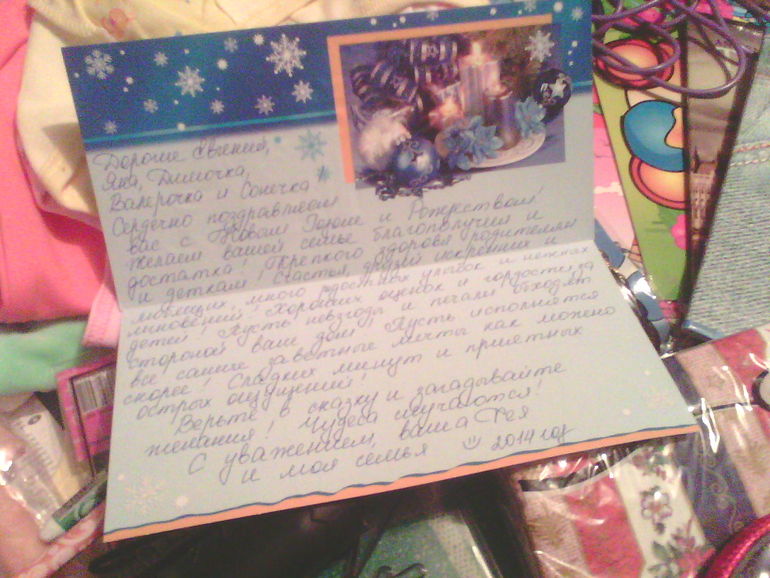 Дорогие Евгений,
Яна, Димочка,
Валерочка и Сонечка
Сердечно поздравляем
вас с Новым Годом и Рождеством!
Желаем вашей семье благополучия и
достатка! Крепкого здоровья родителям
и деткам! Счастья, друзей искренних и
любящих, много радостных улыбок и нежных
мгновений! Хороших оценок и гордости за
детей! Пусть невзгоды и печали обходят
стороной ваш дом! Пусть исполнятся
все самые заветные мечты как можно
скорее! Сладких минут и приятных
острых ощущений!
Верьте в сказку и загадывайте
желания! Чудеса случаются!
С уважением, ваша
и моя семья 2014 год